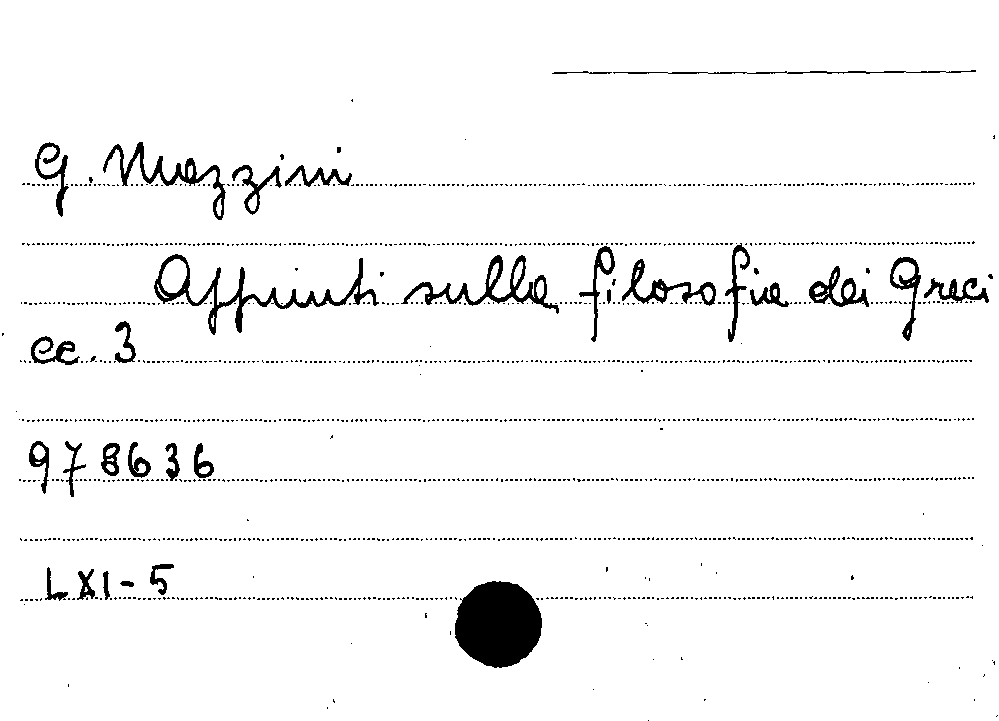 G. Mazzini
Appunti sulla filosofia dei Greci
cc. 3
978636
LXI-5